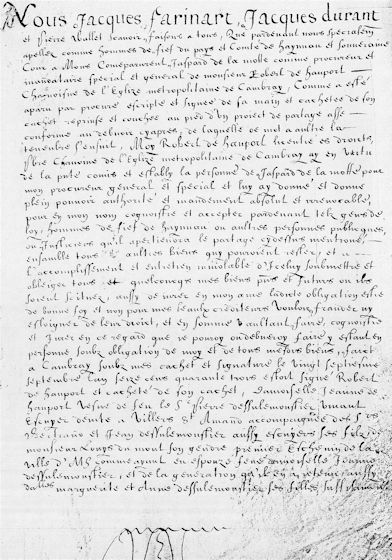 Nous Jacques farinart, Jacques durant
et Pierre Wallet scavoir faisons a tous, Que pardevant nous specialem
apellez comme hommes de fief du pays et Comté de haynnau et souveraine
Cour a Mons Comparurent Jaspard de la motte comme procureur et
mandataire special et general de monsieur Robert de hauport
Chasnoisne de l'Eglize metropolitaine de Cambray, Comme a esté
aparu par procure escripte et signee de sa main et cachetee de son
cachet reprinse et couchee au pied d'un proiect de partage asse
conforme au debvoir cyapres, de laquelle de mot a aultre la
teneur s'ensuit, Moy Robert de hauport licentié es droits
Pbre Chanoine de l'Eglize metropolitaine de Cambray ay en vertu
de la pnte comis et estably la personne de Jaspard de la motte pour
mon procureur general et special et luy ay donné et donne
plein pouvoir authorité et mandement absolut et irrevocable,
pour en mon nom cognoistre et accepter pardevant telz gens de
loy, hommes de fief de haynnau ou aultres personnes publicques,
ou Justiciers qu'il apertiendra le partage cydessus mentionné,
ensamble tous aultres biens quy pouroient rester, et a
l'acomplissement et entretien inviolable d'Iceluy soubmettre et
obliger tous et quelconcqs mes biens pnts et futurs ou ilz
soient scituez, aussy de jurer en mon ame ladicte obligation estre
de bonne foy et non pour mes leaux crediteurs vouloir frauder ny
esloigner de leur droit, et en somme vaultant faire, cognoistre
et Jurer en ce regard que je pouroy ou debveroy faire y estant en
personne soubz obligation de moy et de tous mesdis biens, faict
a Cambray soubz mes cachet et signature le vingt septiesme
septembre l'an seize cens quarante trois estoit signé Robert
de hauport et cacheté de son cachet, Damoiselle Jeanne de
hauport vefve de feu le Sr Pierre dessulemoustier vivant
Escuyer demte a Villers St Amand accompaignee des Srs
Bertrand et Jean dessulemoustier aussy escuyers ses filz
monsieur Louys du mont son gendre premier Eschevin de la
ville d'Ath comme ayant en espouze fene demoiselle Jeanne
dessulemoustier, et de la generation qu'il en a retenu, aussy
dalles marguerite et Anne dessulemoustier ses filles, suffisam